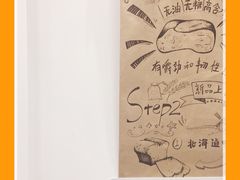 无油无糖高含
有嚼劲和韧性
新品上
Step2
北海道